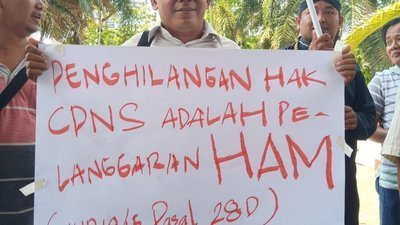 PENGHILANGAN HAK
CDNS ADALAH PE-
LANGGARAN HAM
Pasal 28D)